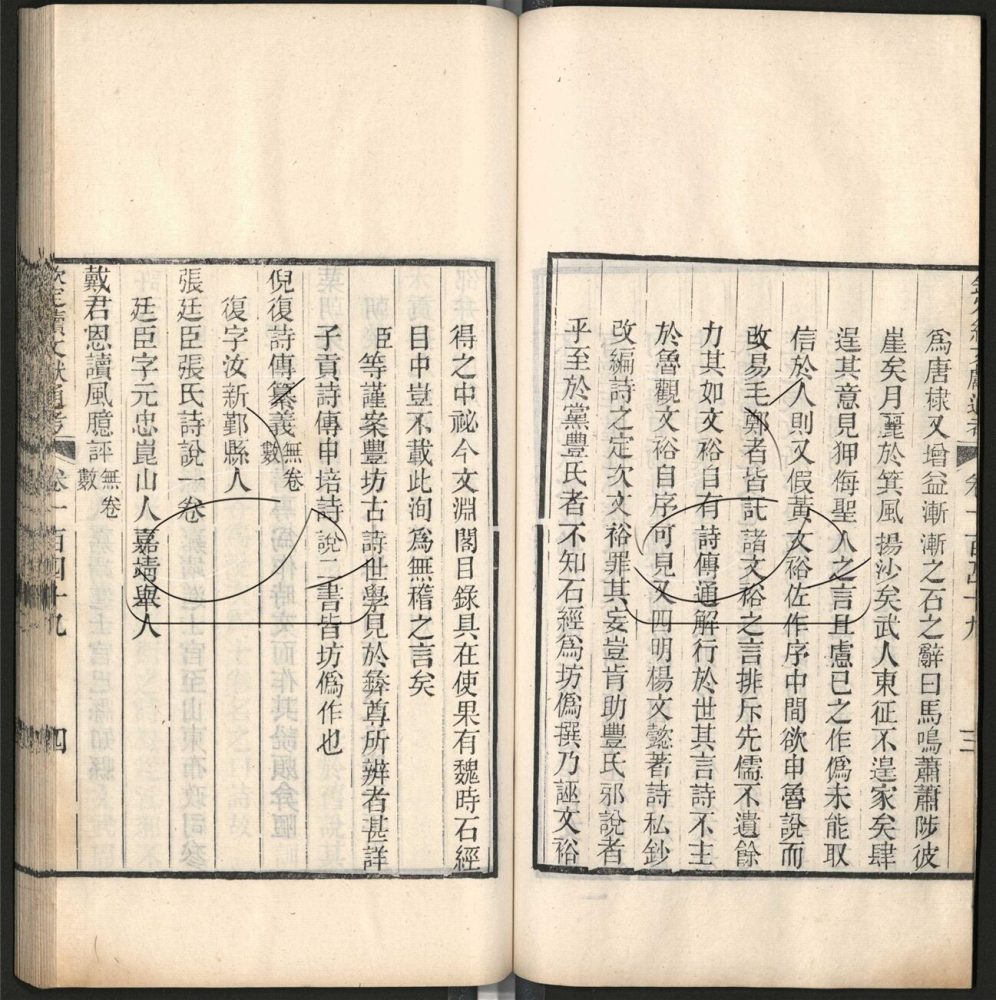 為唐棣又增益漸漸之石之辭曰馬鳴蕭蕭陟彼
崖矣月麗於箕風揚沙矣武人東征不遑家矣肆
逞其意見狎侮聖人之言且慮已之作偽未能取
信於人則又假黃文裕佐作序中間欲申魯說而
改易毛鄭者皆託諸文裕之言排斥先儒不遺餘
力其如文裕自有詩傳通解行於世其言詩不主
於魯觀文裕自序可見又四明楊文懿著詩私鈔
改編詩之定次文裕罪其妄豈肯助豐氏邪說者
乎至於黨豐氏者不知石經為坊偽撰乃誣文裕
得之中祕今文淵閣目錄具在使果有魏時石經
目中豈不載此洵為無稽之言矣
臣等謹案豐坊古詩世學見於彝尊所辨者甚詳
子貢詩傳申培詩說二書皆坊偽作也
倪復詩傳纂義無卷數
復字汝新鄞縣人
張廷臣張氏詩說一卷
廷臣字元忠崑山人嘉靖舉人
戴君恩讀風臆評無卷數
欽定續文獻通考 卷一百四十九 四